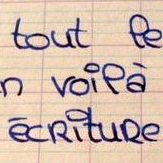 tout le
n voilà
ÉCRiTURE